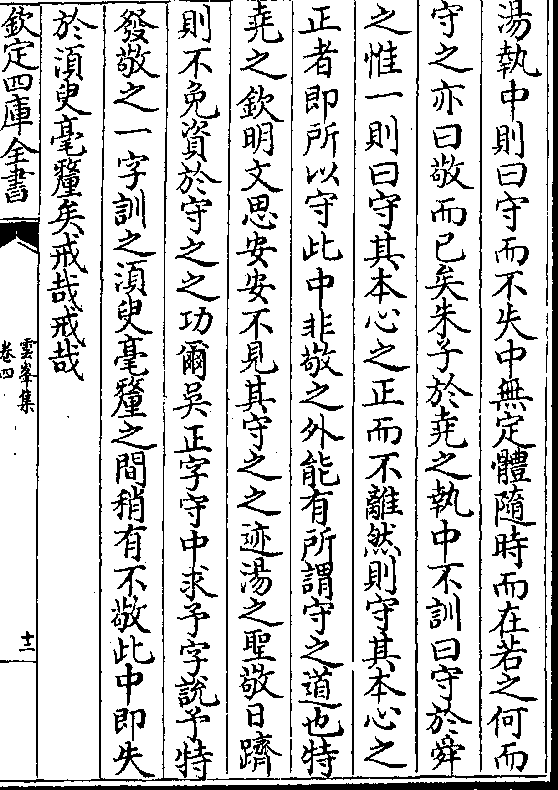 湯執中則曰守而不失中無定體隨時而在若之何而
守之亦曰敬而已矣朱子於堯之執中不訓曰守於舜
之惟一則曰守其本心之正而不離然則守其本心之
正者即所以守此中非敬之外能有所謂守之道也特
堯之欽明文思安安不見其守之之迹湯之聖敬日躋
則不免資於守之之功爾吳正字守中求予字說予特
發敬之一字訓之湏臾毫釐之間稍有不敬此中即失
於湏臾毫釐矣戒哉戒哉
欽定四庫全書
雲峯集
卷四
十三